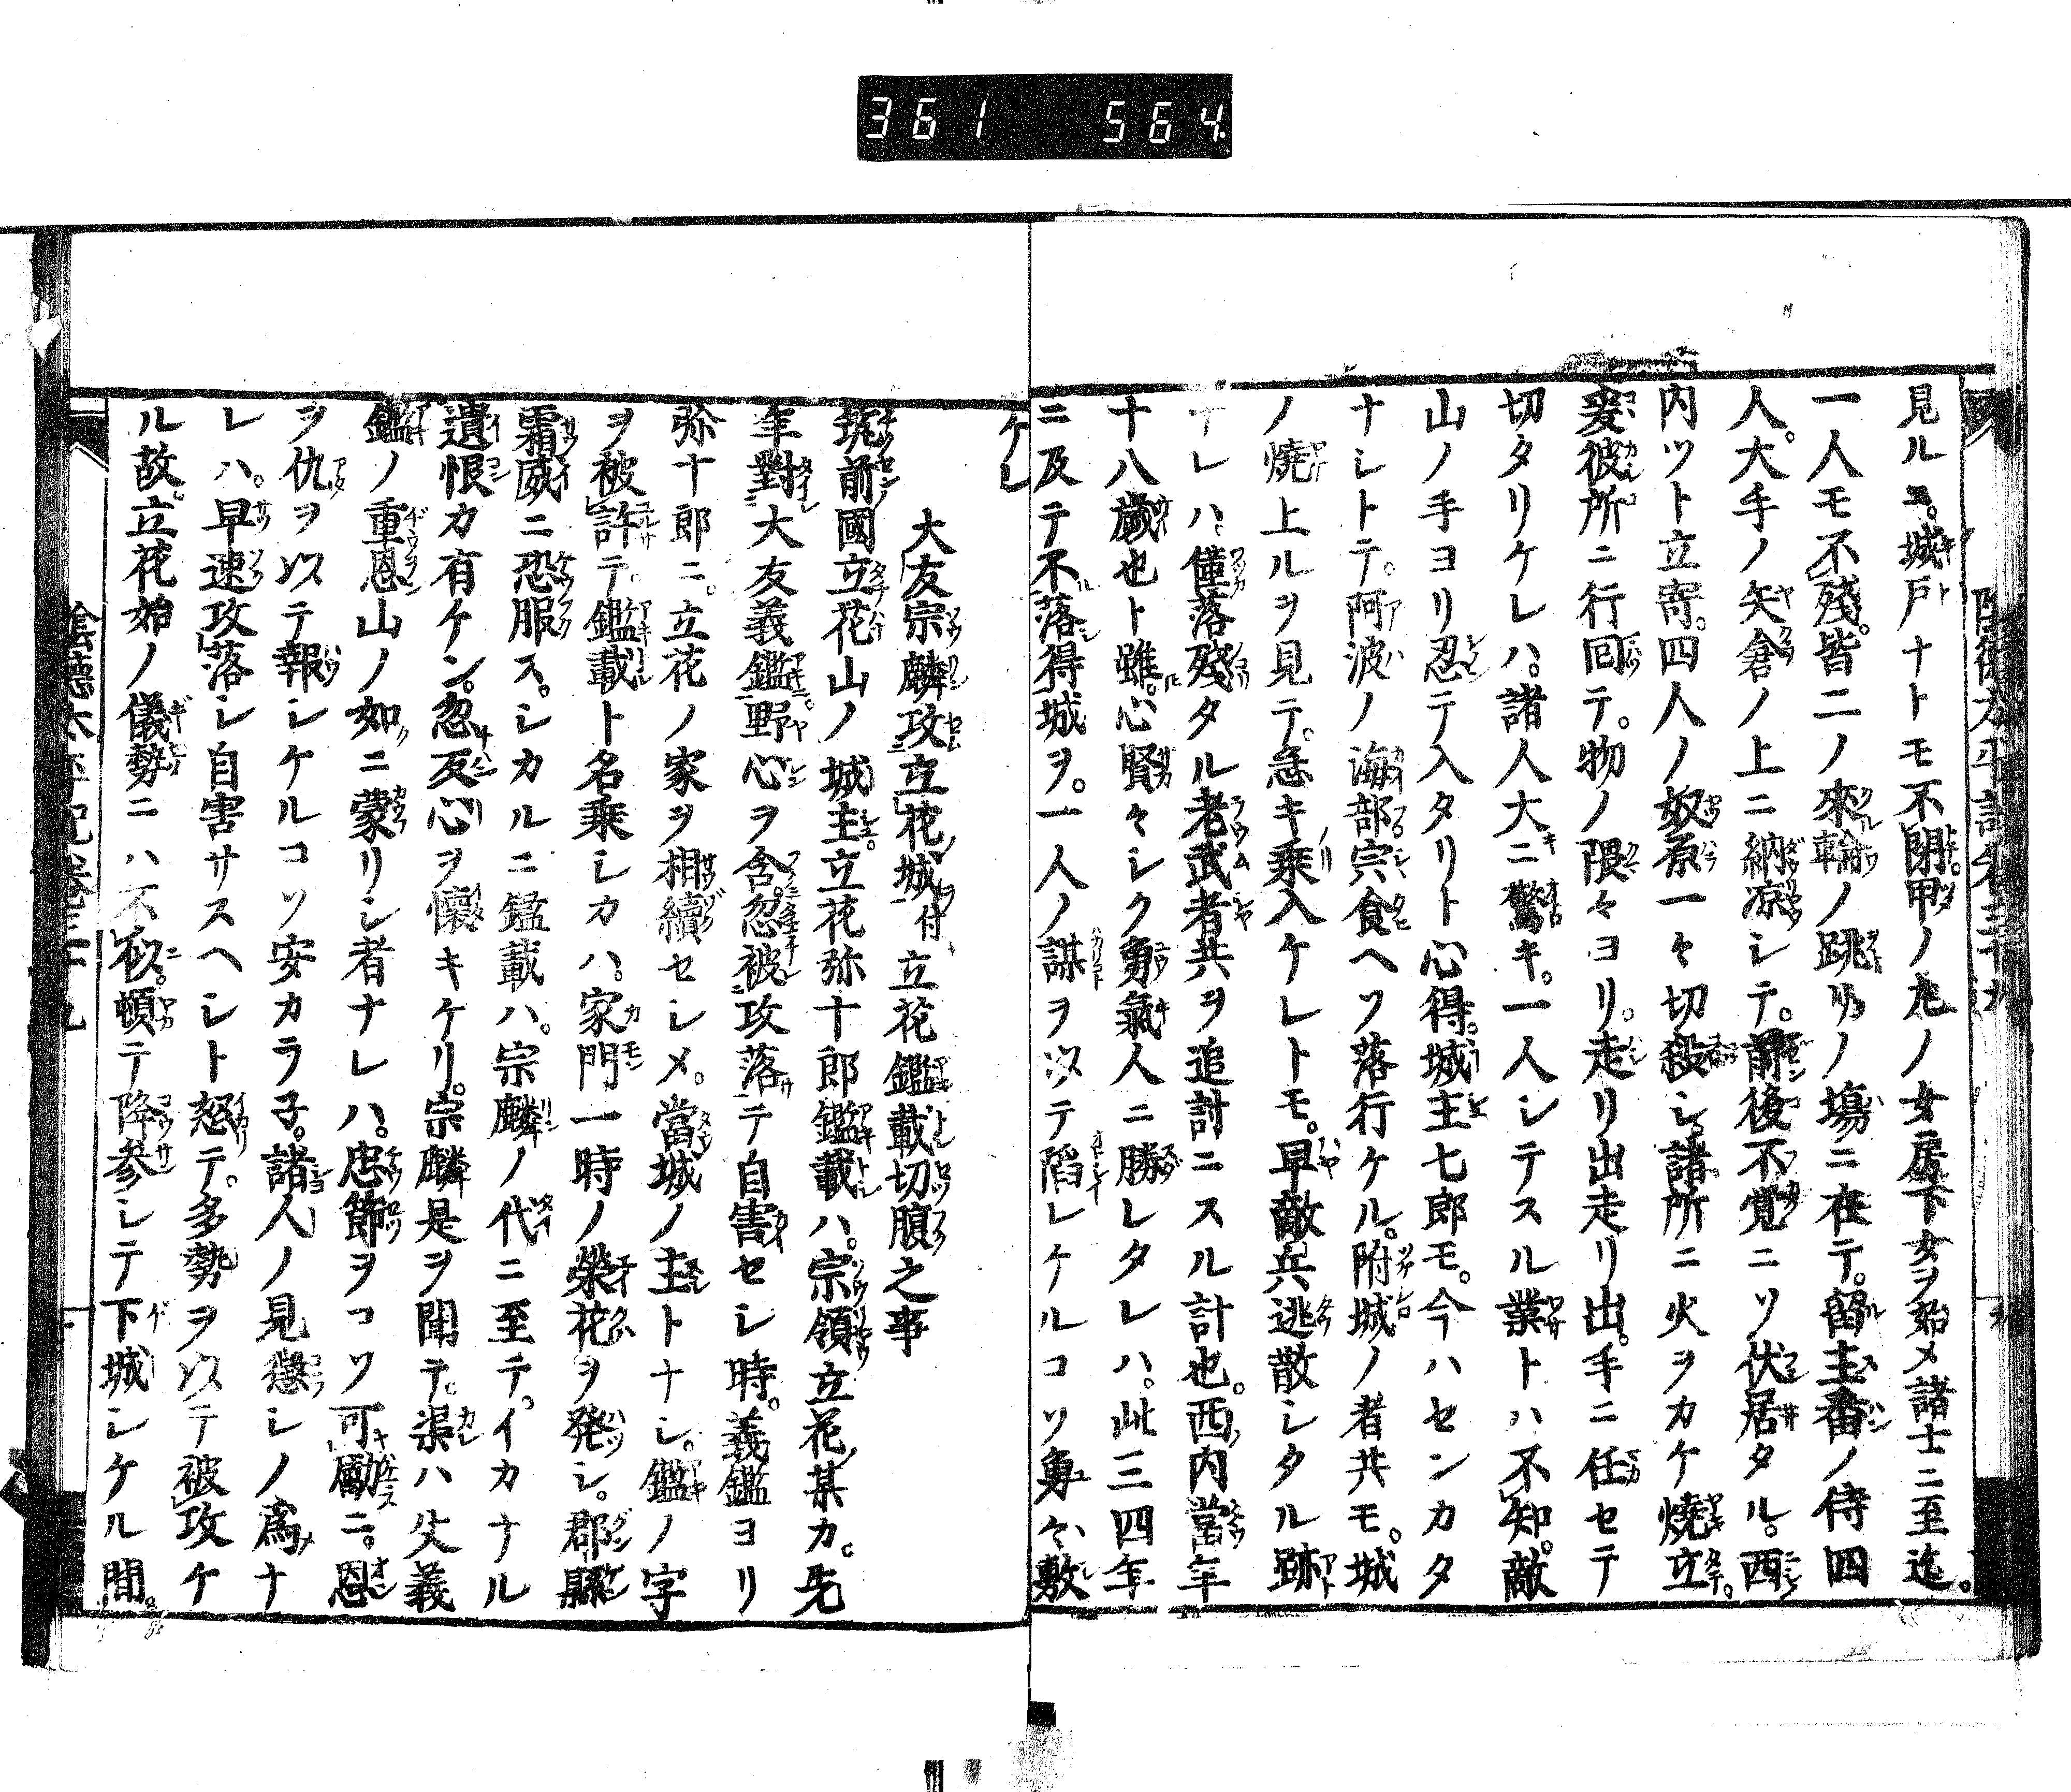 361 564
陰徳太平記卷三十九
見ルニ。城戸ナトモ不閉甲ノ丸ノ女房下女ヲ始メ諸士ニ至迄。
一人モ不殘。皆二ノ來輪ノ跳リノ塲ニ在テ。留主番ノ侍四
人。大手ノ矢倉ノ上ニ納凉シテ。前後不覚ニソ伏居タル。西
内ツト立寄。四人ノ奴原一々切殺シ諸所ニ火ヲカケ燒立。
爰彼所ニ行囘テ。物ノ隈々ヨリ。走リ出走リ出。手ニ任セテ
切タリケレハ。諸人大ニ驚キ。一人シテスル業トハ不知。敵
山ノ手ヨリ忍テ入タリト心得。城主七郎モ。今ハセンカタ
ナシトテ。阿波ノ海部宍食ヘソ落行ケル。附城ノ者共モ。城
ノ燒上ルヲ見テ。急キ乘入ケレトモ。早敵兵逃散シタル跡
ナレハ。僅落殘タル老武者共ヲ追討ニスル計也。西内當年
十八歳也ト雖。心賢々シク勇氣人ニ勝レタレハ。此三四年
ニ及テ不落得城ヲ。一人ノ謀ヲ以テ陷レケルコソ勇々敷
ケレ
大友宗麟攻立花城付立花鑑載切腹之事
筑前國立花山ノ城主立花弥十郎鑑載ハ。宗領立花某カ。先
年對大友義鑑野心ヲ含。忽被攻落テ自害セシ時。義鑑ヨリ
弥十郎ニ。立花ノ家ヲ相續セシメ。當城ノ主トナシ。鑑ノ字
ヲ被許テ。鑑載ト名乘シカハ。家門一時ノ榮花ヲ発シ。郡縣
霜威ニ恐服ス。シカルニ鑑載ハ。宗麟ノ代ニ至テ。イカナル
遺恨カ有ケン。忽反心ヲ懷キケリ。宗麟是ヲ聞テ。渠ハ父義
鑑ノ重恩山ノ如ニ蒙リシ者ナレハ。忠節ヲコソ可勵ニ。恩
ヲ仇ヲ以テ報シケルコソ安カラ子。諸人ノ見懲シノ爲ナ
レハ。早速攻落シ自害サスヘシト怒テ。多勢ヲ以テ被攻ケ
ル故。立花始ノ儀勢ニハ不似。頓テ降参シテ下城シケル間。
陰德太平記卷三十九